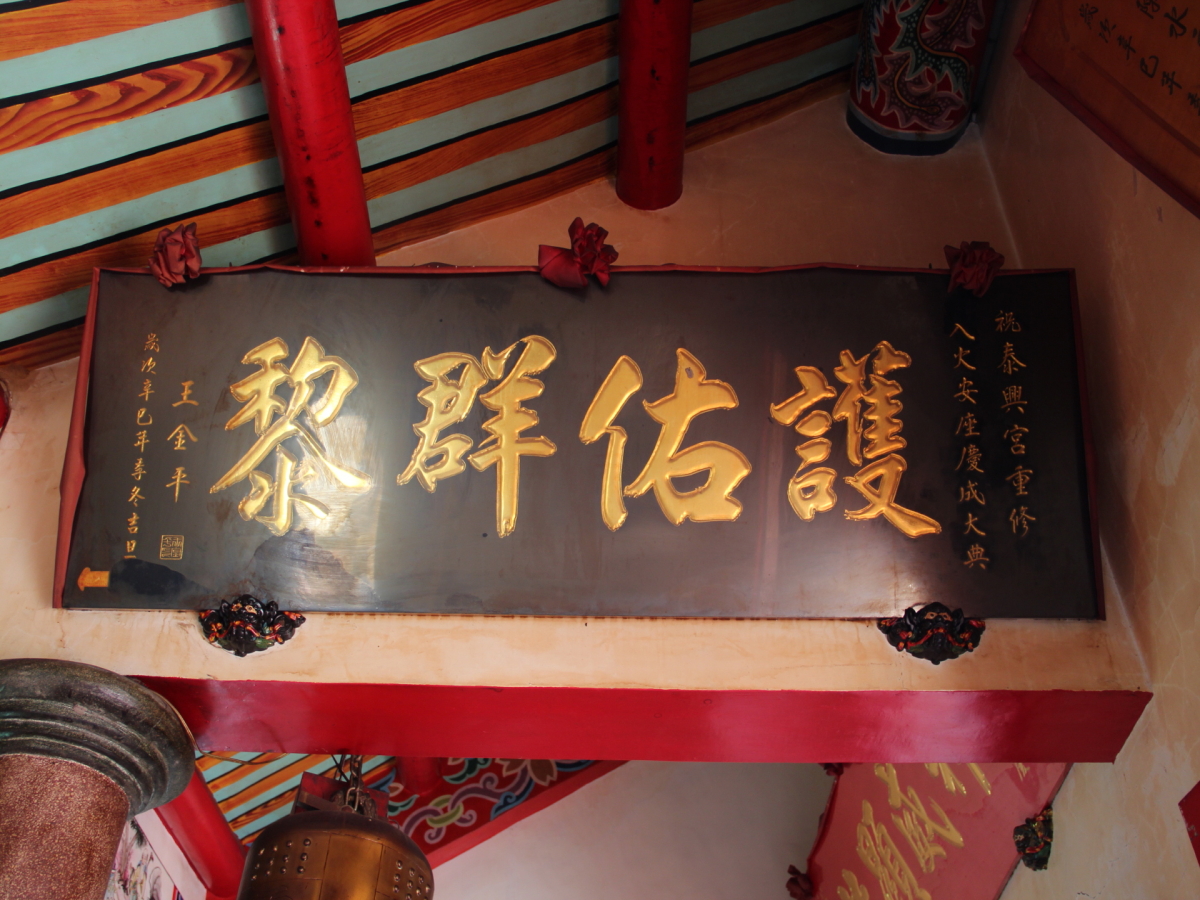 祝泰興宮重修
入火安座慶成大典
護佑群黎
王金平
歲次辛巳年季冬吉旦
歲次辛巳年